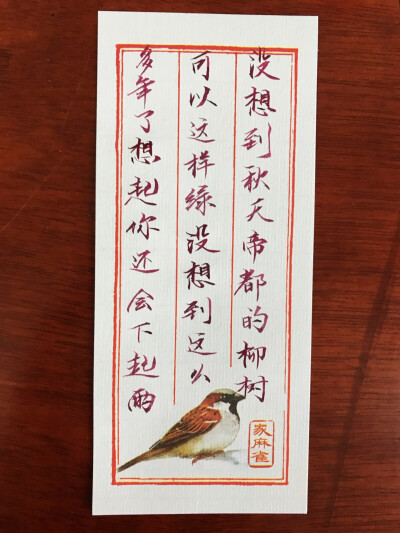 没想到秋天帝都的柳树
可以这样绿没想到这么
多年了想起你还会下起雨
家麻雀